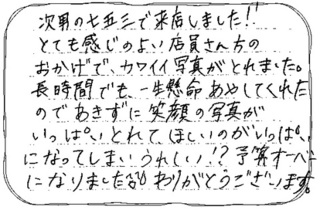 次男の七五三で来店しました!!
とても感じのよい店員さん方の
おかげで、カワイイ写真がとれました。
長時間でも、一生懸命あやしてくれた
のであきずに笑顔の写真が
いっぱいとれてほしいのがいっぱい
になってしまいうれしい!?予算オーバー
になりました ありがとうございます。